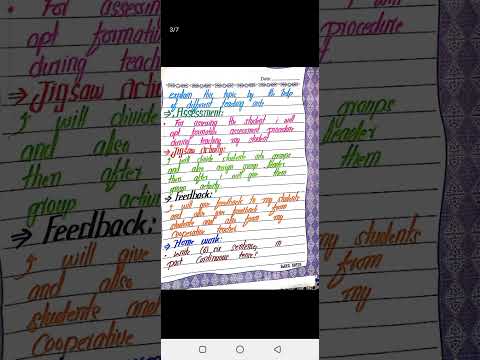 3/7
Date:
explain this topic by the help
of different teaching aids
→ Assessment:
• For assessing the student i will
opt formative assessment procedure
during teaching my student
→ Jigsaw activity:
i will divide students into groups
and also assign group leader
then after i will give them
group activity.
→ Feedback:
i will give feedback to my students
and also take feedback from
students and also from my
Cooperative teacher.
→ Home work:
• Write (6) six sentences in
past continuous tense?